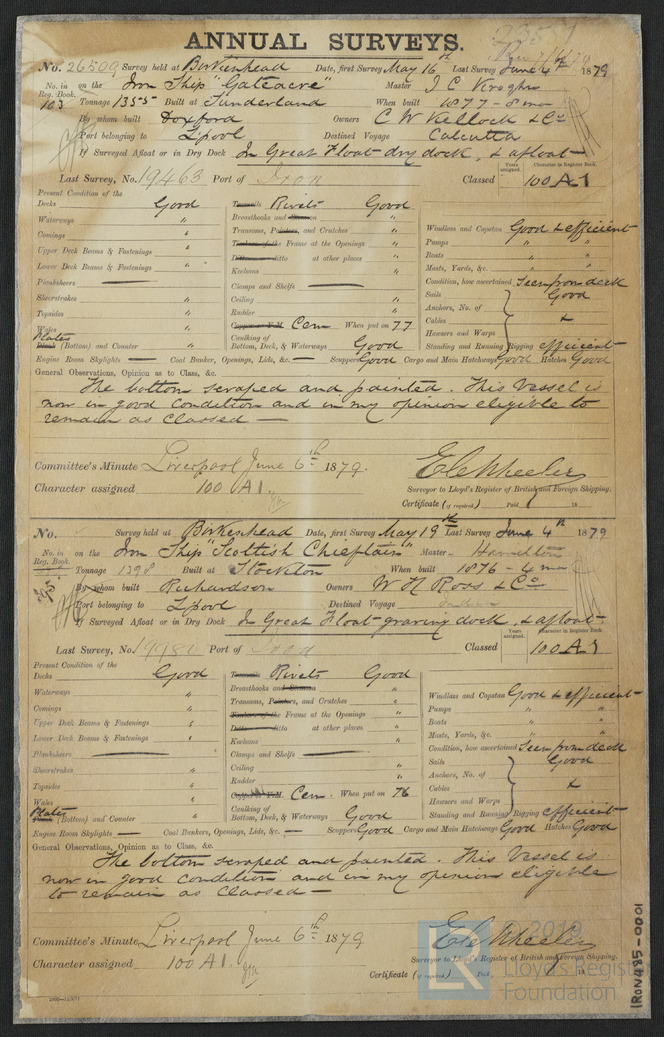 ANNUAL SURVEYS.
No. 26509 Survey held at Birkenhead Date, first Survey May 16th Last Survey June 4th 1879
No. in Reg. Book. 103 on the Iron Ship "Gateacre" Master J C
Tonnage 1355 Built at Sunderland When built 1877 - 8 mo
By whom built Doxford Owners C W Kellock & Co
Port belonging to L'pool Destined Voyage Calcutta
If Surveyed Afloat or in Dry Dock In Great Float dry dock, & afloat
Last Survey, No. 19463 Port of Iron Classed Years assigned. Character in Register Book. 100 A1
Present Condition of the
Decks Good Rivets Good
Waterways " Breasthooks and "
Comings " Transoms, Pointers, and Crutches " Windlass and Capstan Good & efficient
Upper Deck Beams & Fastenings " Timbers of the Frame at the Openings " Pumps " "
Lower Deck Beams & Fastenings " Ditto ditto at other places " Boats " "
Planksheers — Keelsons " Masts, Yards, &c. " "
Sheerstrakes " Clamps and Shelfs — Condition, how ascertained Seen from deck
Topsides " Ceiling " Sails Good
Wales " Rudder " Anchors, No. of
Plates (Bottom) and Counter " Copper or Y.M. Cem When put on 77 Cables &
Caulking of Bottom, Deck, & Waterways Good Hawsers and Warps
Standing and Running Rigging efficient
Engine Room Skylights — Coal Bunker, Openings, Lids, &c. — Scuppers Good Cargo and Main Hatchways Good Hatches Good
General Observations, Opinion as to Class, &c.
The bottom scraped and painted. This Vessel is
now in good condition and in my opinion eligible to
remain as Classed —
Committee's Minute Liverpool June 6th 1879.
Character assigned 100 A1.
E C Wheeler
Surveyor to Lloyd's Register of British and Foreign Shipping.
Certificate (if required) Paid 18
No. Survey held at Birkenhead Date, first Survey May 19th Last Survey June 4th 1879
No. in Reg. Book. 395 on the Iron Ship "Scottish Chieftain" Master Hamilton
Tonnage 1398 Built at Stockton When built 1876 - 4 mo
By whom built Richardson Owners W H Ross & Co
Port belonging to L'pool Destined Voyage
If Surveyed Afloat or in Dry Dock In Great Float graving dock, & afloat
Last Survey, No. Port of Iron Classed Years assigned. Character in Register Book. 100 A1
Present Condition of the
Decks Good Rivets Good
Waterways " Breasthooks and "
Comings " Transoms, Pointers, and Crutches " Windlass and Capstan Good & efficient
Upper Deck Beams & Fastenings " Timbers of the Frame at the Openings " Pumps " "
Lower Deck Beams & Fastenings " Ditto ditto at other places " Boats " "
Planksheers — Keelsons " Masts, Yards, &c. " "
Sheerstrakes " Clamps and Shelfs — Condition, how ascertained Seen from deck
Topsides " Ceiling " Sails Good
Wales " Rudder " Anchors, No. of
Plates (Bottom) and Counter " Copper or Y.M. Cem When put on 76 Cables &
Caulking of Bottom, Deck, & Waterways Good Hawsers and Warps
Standing and Running Rigging efficient
Engine Room Skylights — Coal Bunkers, Openings, Lids, &c. — Scuppers Good Cargo and Main Hatchways Good Hatches Good
General Observations, Opinion as to Class, &c.
The bottom scraped and painted. This Vessel is
now in good condition and in my opinion eligible
to remain as Classed —
Committee's Minute Liverpool June 6th 1879
Character assigned 100 A1.
E C Wheeler
Surveyor to Lloyd's Register of British and Foreign Shipping.
Certificate (if required) Paid 18
© 2019
Lloyd's Register
Foundation
IRON485-0001